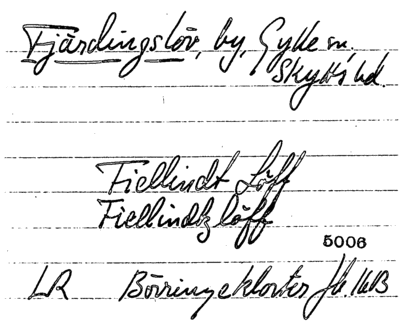 Fjärdingslöv, by, Gylle sn.
Skytts hd.
Fiellindt Löff
Fiellindtz löff
5006
LR Börringekloster Jb. 16B